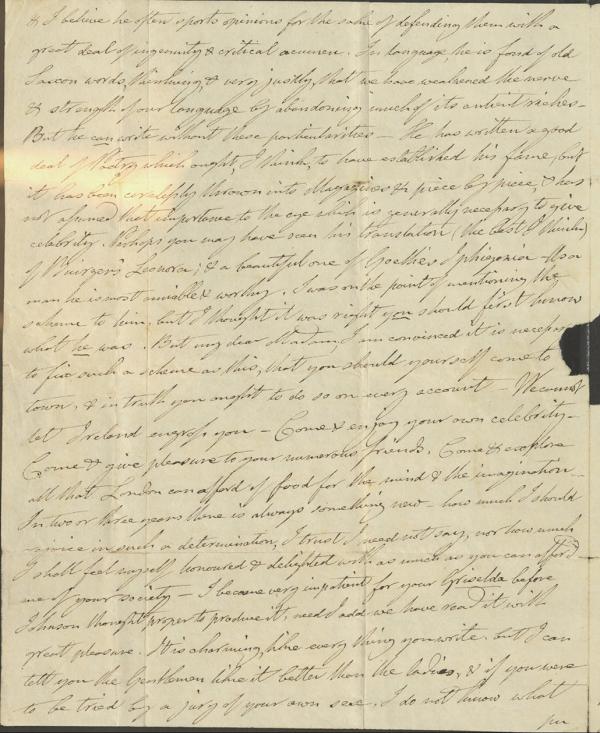 & I believe he often sports opinions for the sake of defending them with a
great deal of ingenuity & critical acumen. In language, he is fond of old
Saxon words, thinking, & very justly, that we have weakened the nerve
& strength of our language by abandoning much of its antient riches —
But he can write without these particularities — He has written a good
deal of Poetry which ought, I think, to have established his fame, but
it has been carelessly thrown into Magazines &c piece by piece, & has
not assumed that importance to the eye which is generally necessary to give
celebrity. Perhaps you may have seen his translation (the best I think)
of Buirger's Leonora; & a beautiful one of Goethe's Iphigenia — As a
man he is most amiable & worthy. I was on the point of mentioning the
scheme to him, but I thought it was right you should first know
what he was. But my dear Madam, I am convinced it is necessary
to fix such a scheme as this, that you should yourself come to
town, & in truth you ought to do so on every account — We cannot
let Ireland engross you — Come & enjoy your own celebrity —
Come & give pleasure to your numerous friends. Come & explore
all that London can afford of food for the mind & the imagination —
In two or three years there is always something new — how much I should
rejoice in such a determination, I trust I need not say, nor how much
I shall feel myself honoured & delighted with as much as you can afford
me of your society — I became very impatient for your Griselda before
Johnson thought proper to produce it, need I add we have read it with
great pleasure. It is charming, like every thing you write, but I can
tell you the Gentlemen like it better than the ladies, & if you were
to be tried by a jury of your own sex, I do not know what